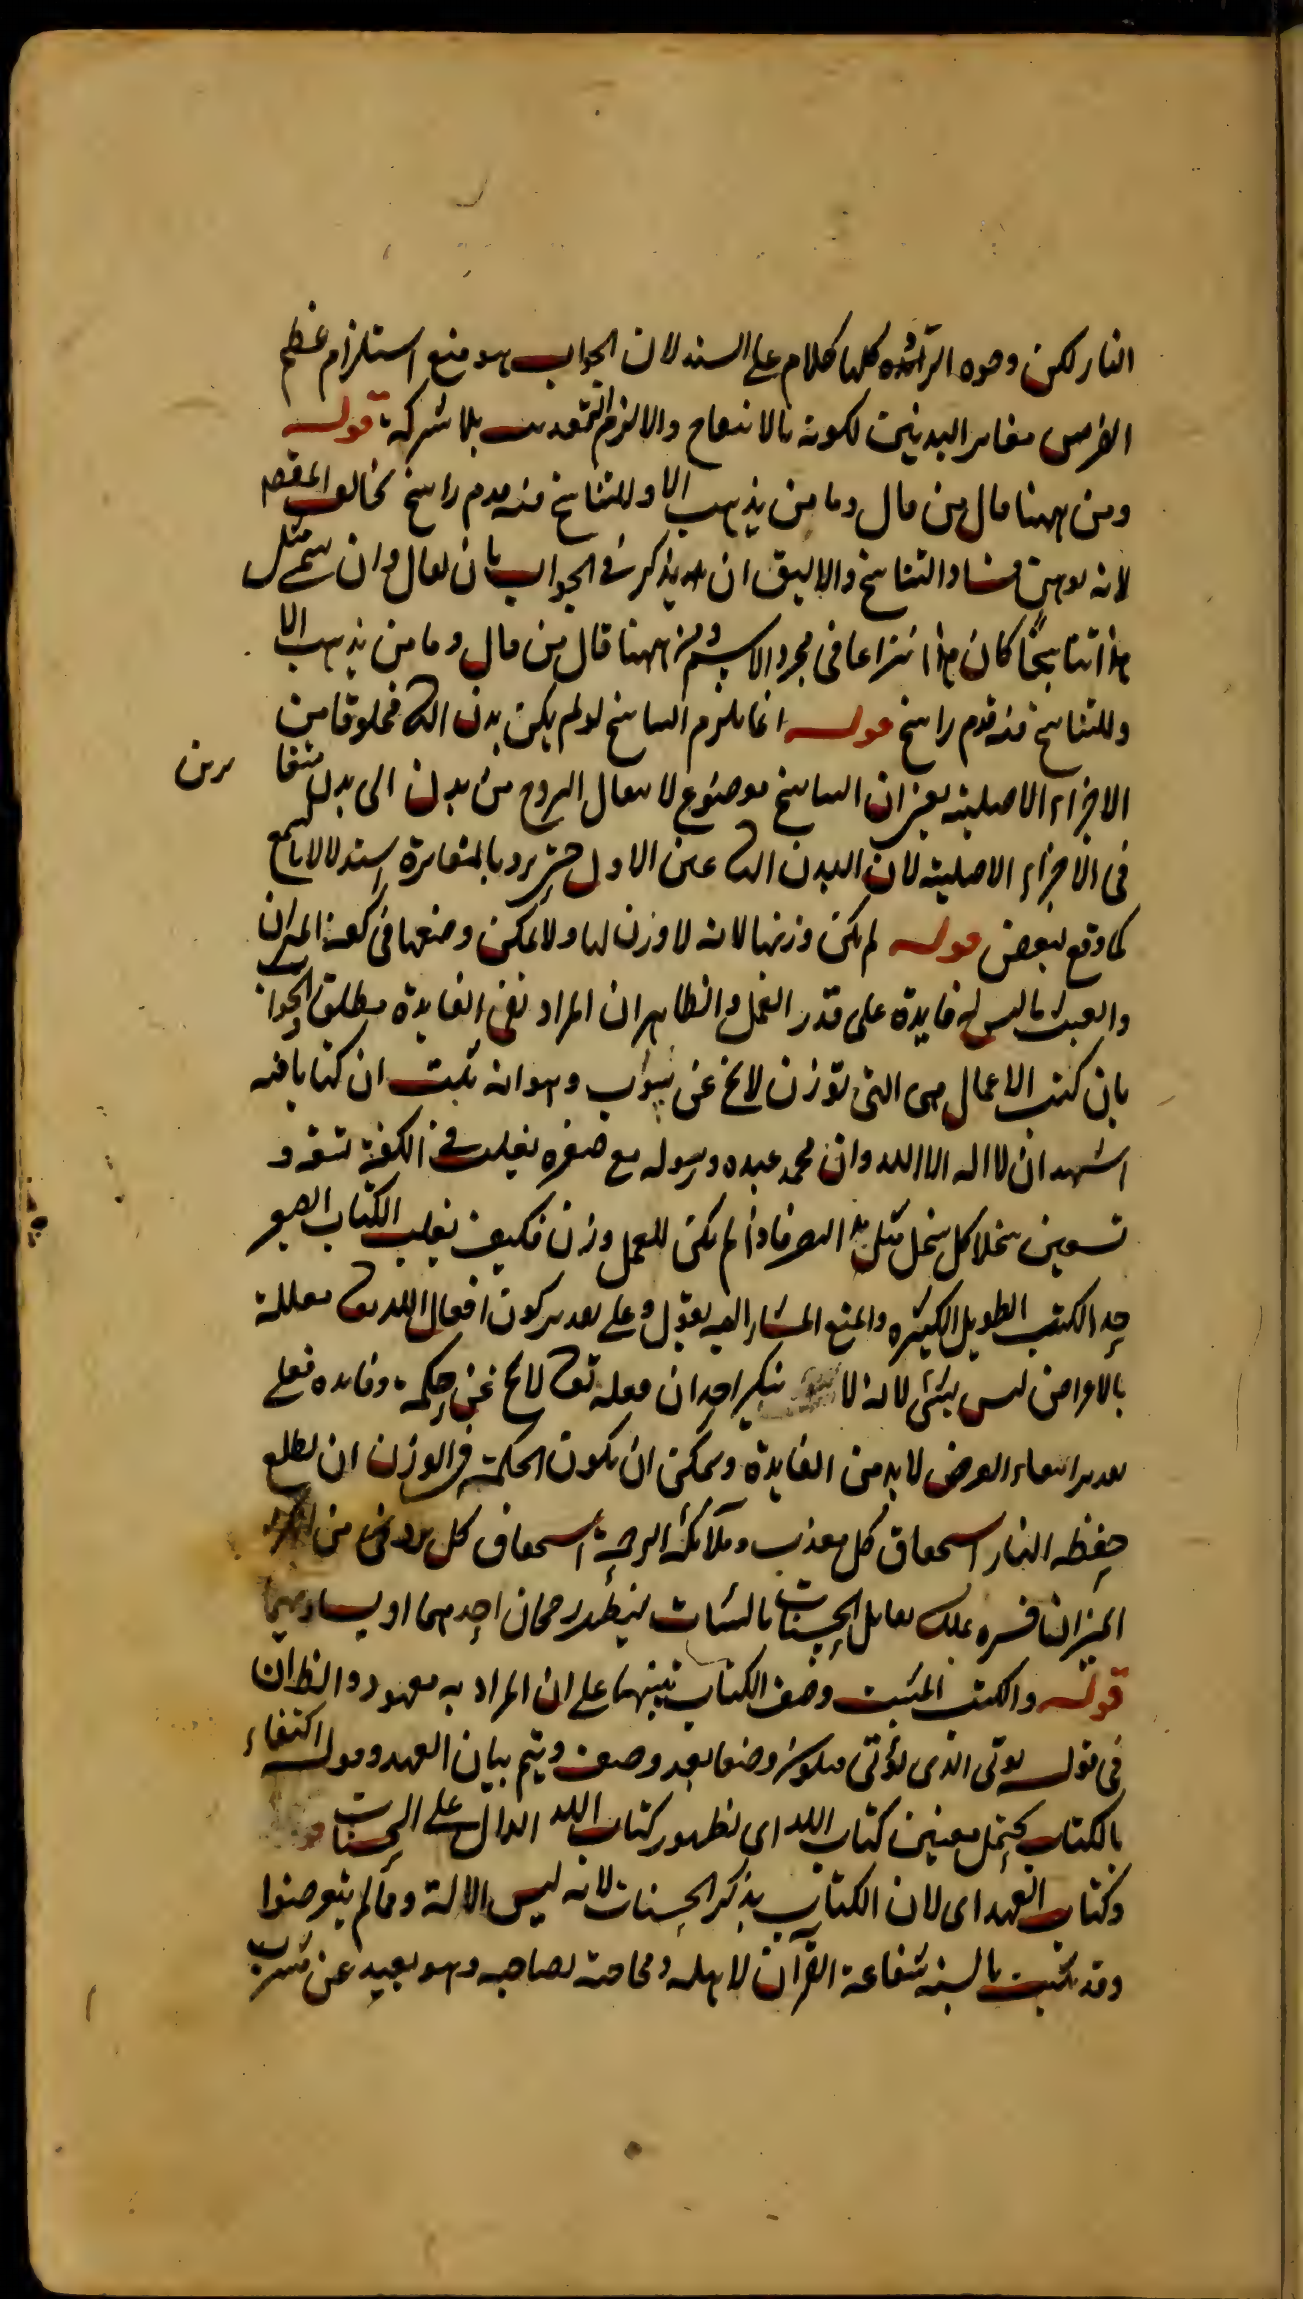 النار لكن وجوه الزائده كلها كلام على السند لان الجواب هو منع استلزام عظم
الضرس مغاير البدنين لكونه بالانتفاخ والا لزم التعذيب بلا شركة قوله
ومن ههنا قال من قال وما من مذهب الا وللتناسخ فيه قدم راسخ يخالف المقصد
لانه يوهن فساد التناسخ والاليق ان يذكر في الجواب بان يقال وان سمى مثل
هذا تناسخا كان هذا نزاعا في مجرد الاسم ومن ههنا قال من قال وما من مذهب الا
وللتناسخ فيه قدم راسخ قوله انما يلزم التناسخ لو لم يكن بدن الثا مخلوقا من
الاجزاء الاصلية يعني ان التناسخ موضوع لانتقال الروح من بدن الى بدن متغايرين
في الاجزاء الاصلية لان البدن الثا عين الاول حتى يرد بالمغايرة استدلالا بالسمع
كما وقع لبعض قوله لم يمكن وزنها لانه لا وزن لها ولا يمكن وضعها في كفة الميزان
والعبث ما ليس له فايدة على قدر العمل والظاهر ان المراد نفى الفايدة مطلقا والجواب
بان كتب الاعمال هى التى توزن لا يخ عن شوب وهو انه ثبت ان كتابا فيه
اشهد ان لا اله الا الله وان محمد عبده ورسوله مع صغره يغلب في الكفة تسعة و
تسعين سجلا كل سجل مثل مد البصر فاذا لم يكن للعمل وزن فكيف يغلب الكتاب الصغير
جدا الكتب الطويل الكثيره والمنع المشار اليه بقوله وعلى تقدير كون افعال الله تعا معللة
بالاغراض ليس بشئ لانه لا ينكر احد ان فعله تعا لا يخ عن حكمة وفايده فعلى
تقدير انتفاء الغرض لا بد من الفايدة ويمكن ان يكون الحكمة في الوزن ان يطلع
حفظه النار استحقاق كل معذب وملائكة الرحمة استحقاق كل من
الميزان فسره بتقابل الحسنات بالسيئات ليظهر رجحان احدهما او يساويهما
قوله والكتب المثبت وصف الكتاب تنبيها على ان المراد به معهود والظ ان
في قوله يوتى الذى يؤتى ليكون وصفا بعد وصف ويتم بيان العهد وقوله اكتفاء
بالكتاب يحتمل معنيين كتاب الله اى لظهور كتاب الله الدال على الحسنات
وكتاب العهد اى لان الكتاب يذكر الحسنات لانه ليس الا له ومما لم يتعرضوا
وقد ثبت بالسنة شفاعة القرآن لاهله ومحاجته لصاحبه وهو بعيد عن مشرب